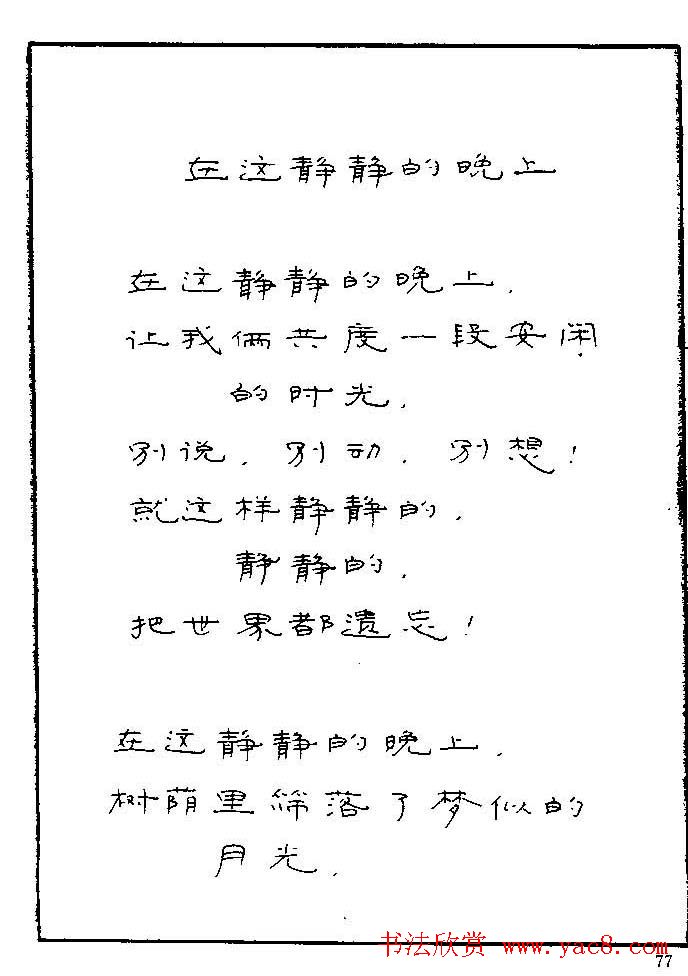 在这静静的晚上
在这静静的晚上,
让我俩共度一段安闲
的时光,
别说,别动,别想!
就这样静静的,
静静的,
把世界都遗忘!
在这静静的晚上,
树荫里筛落了梦似的
月光,
书法欣赏 www.yac8.com
77